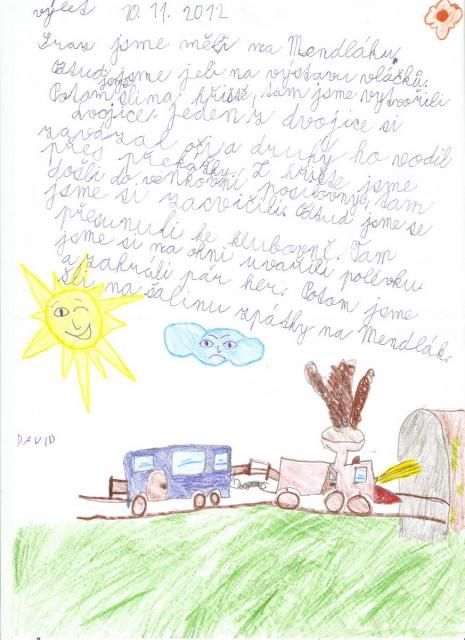 výlet 10.11.2012
Sraz jsme měli na Mendláku.
Odtud jsme jeli na výstavu vláčků.
Potom jsme šli na hřiště, tam jsme vytvořili
dvojice. Jeden z dvojice si
zavázal oči a druhý ho vodil
přes překážky. Z hřiště jsme
došli do venkovní posilovny, tam
jsme si zacvičili. Odtud jsme se
přesunuli ke klubovně. Tam
jsme si na ohni uvařili polévku
a zahráli pár her. Potom jsme
šli na šalinu zpátky na Mendlák.
DAVID